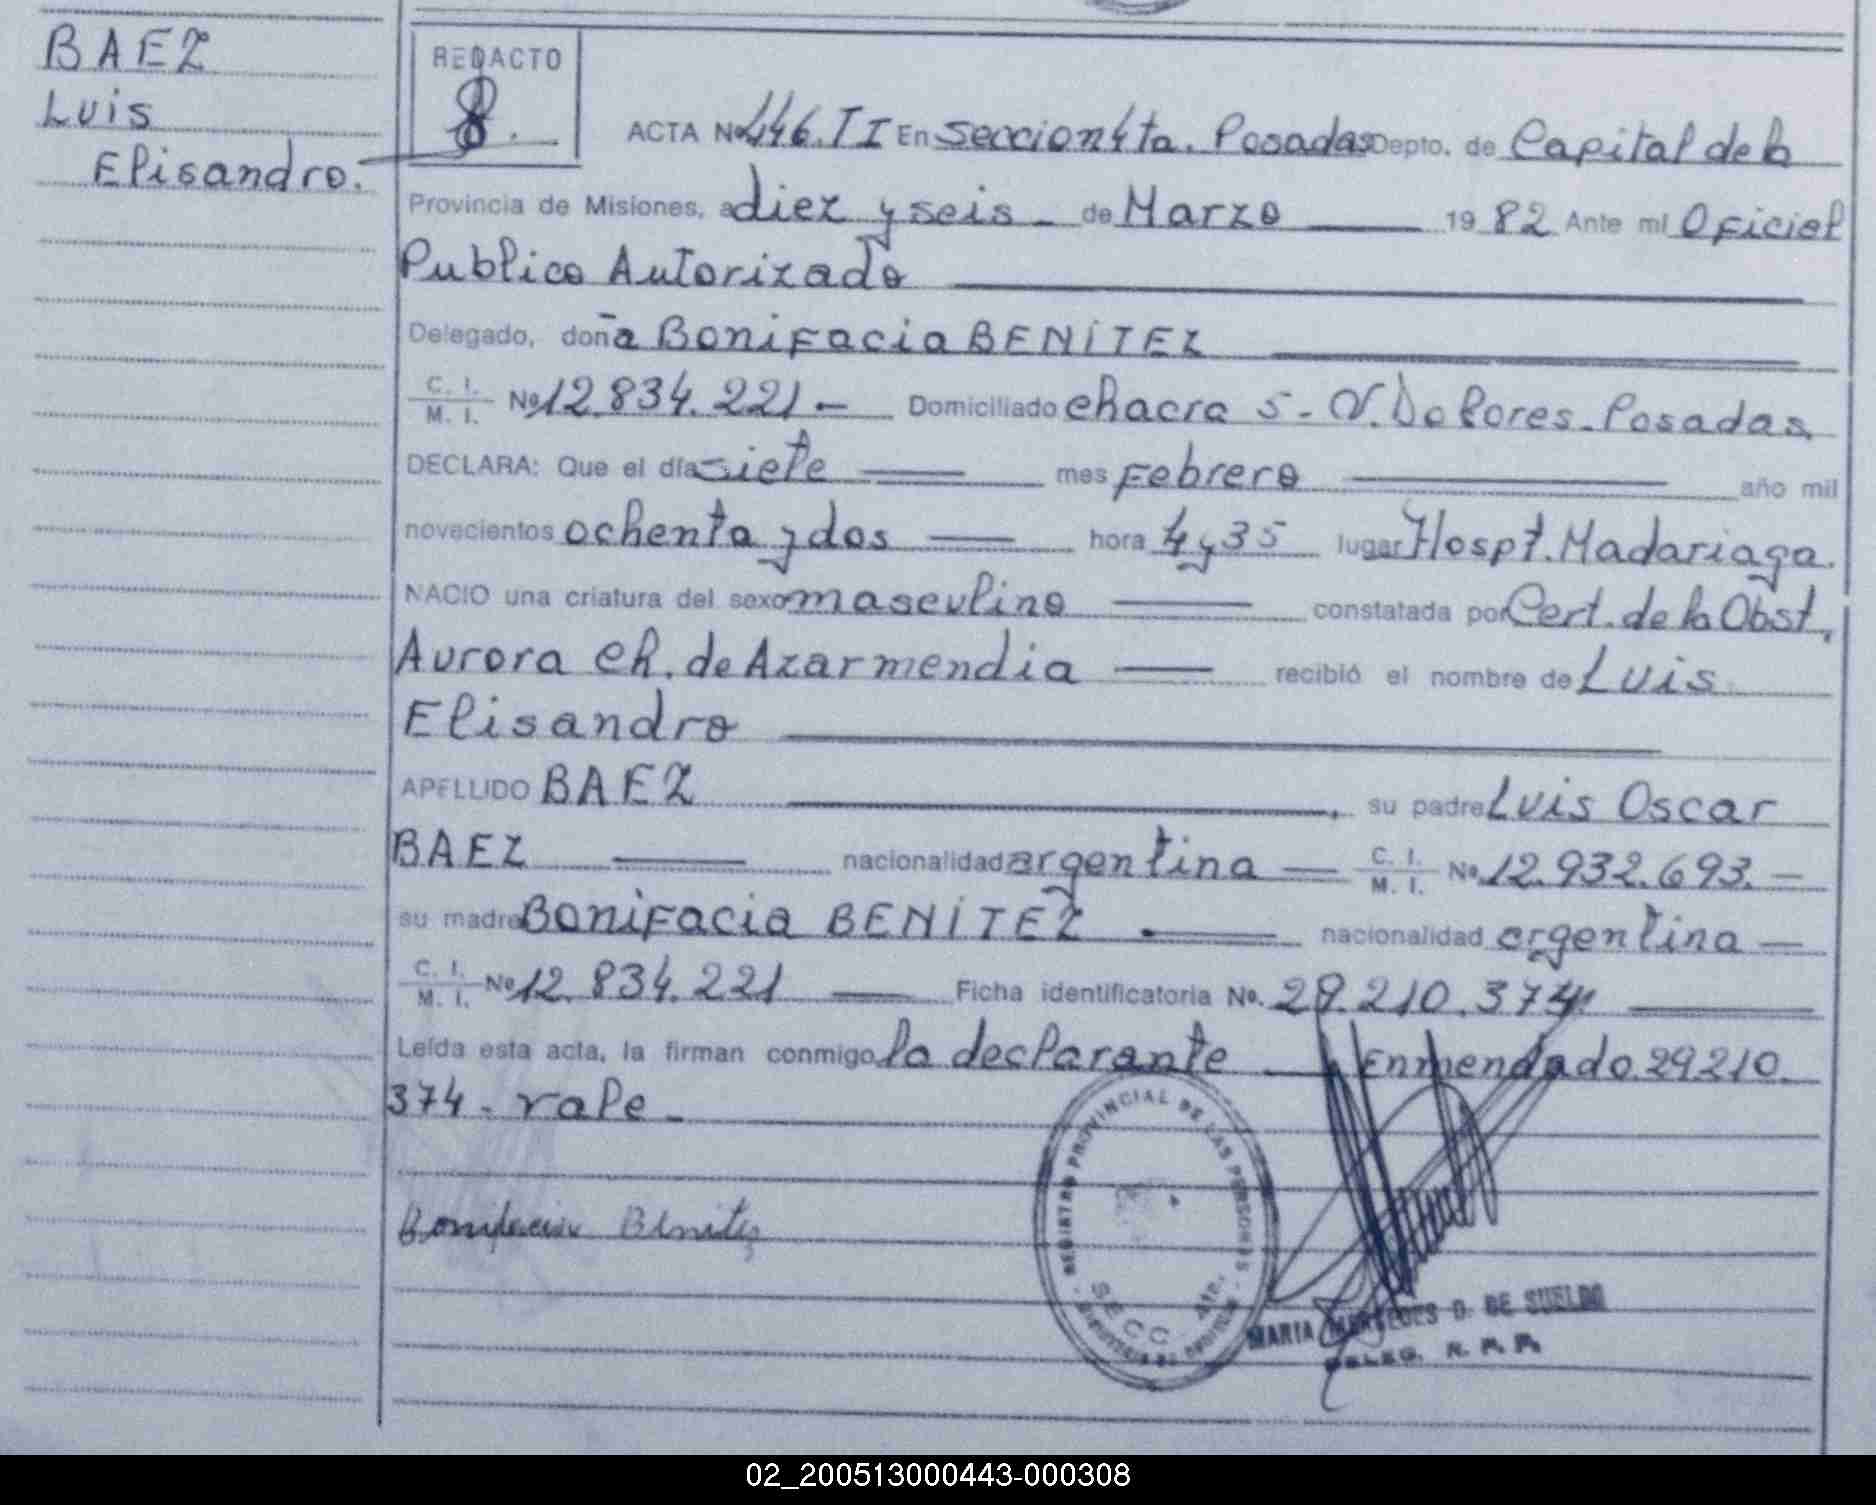 BAEZ
Luis
Elisandro.
REDACTO
8.
ACTA Nº 446.II En Seccion 4ta. Posadas Depto. de Capital de la
Provincia de Misiones, a diez y seis - de Marzo 1982 Ante mí Oficial
Publico Autorizado
Delegado, doña Bonifacia BENÍTEZ
C. I. M. I. Nº 12.834.221 - Domiciliado chacra 5 - V. Dolores - Posadas
DECLARA: Que el día siete mes Febrero año mil
novecientos ochenta y dos hora 4 y 35 lugar Hospt. Madariaga.
NACIO una criatura del sexo masculino constatada por Cert. de la Obst.
Aurora Ch. de Azarmendia recibió el nombre de Luis
Elisandro
APELLIDO BAEZ su padre Luis Oscar
BAEZ nacionalidad argentina C. I. M. I. Nº 12.932.693. -
su madre Bonifacia BENÍTEZ nacionalidad argentina
C. I. M. I. Nº 12.834.221 Ficha identificatoria Nº. 29.210.374
Leída esta acta, la firman conmigo la declarante Enmendado 29210
374 - vale -
Bonifacia Benitez
REGISTRO PROVINCIAL DE LAS PERSONAS
SECC. 4ta.
MARIA MERCEDES D. DE SUELDO
DELEG. R. P. P.
02_200513000443-000308